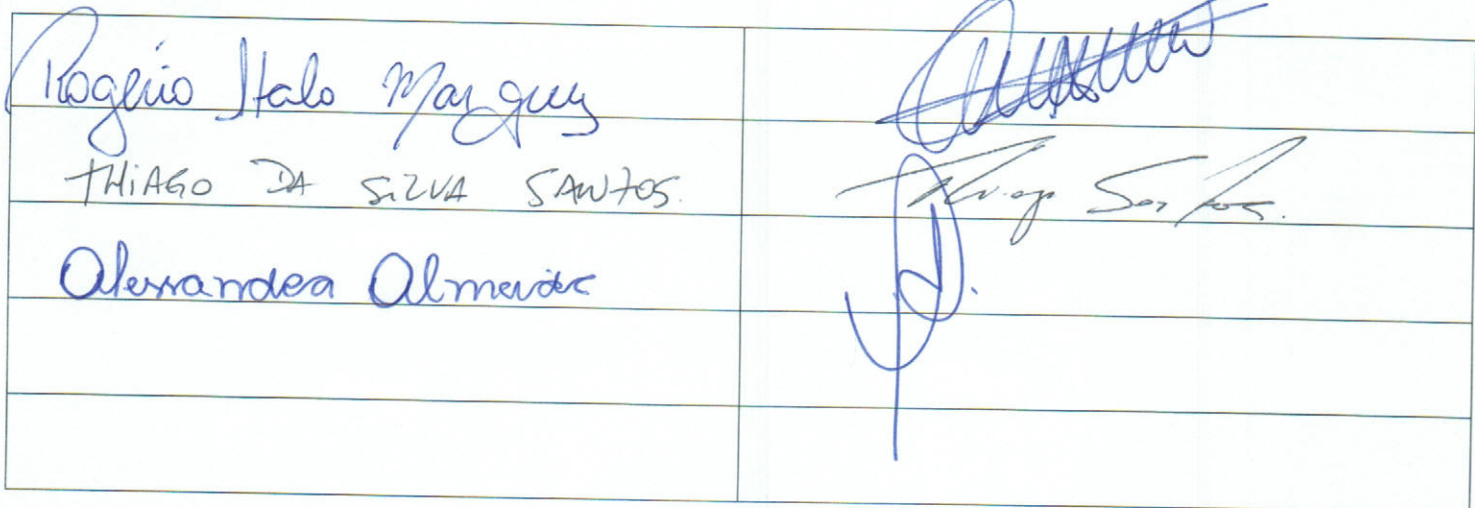 Rogério Italo Marques
THIAGO DA SILVA SANTOS. Thiago Santos.
Alessandra Almeida